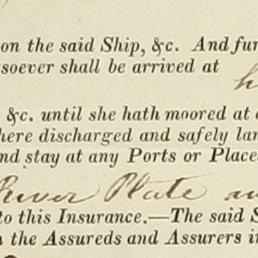 on the said Ship, &c. And fur
soever shall be arrived at
h
&c. until she hath moored at a
here discharged and safely lan
nd stay at any Ports or Place
River Plate
to this Insurance.—The said S
the Assureds and Assurers i